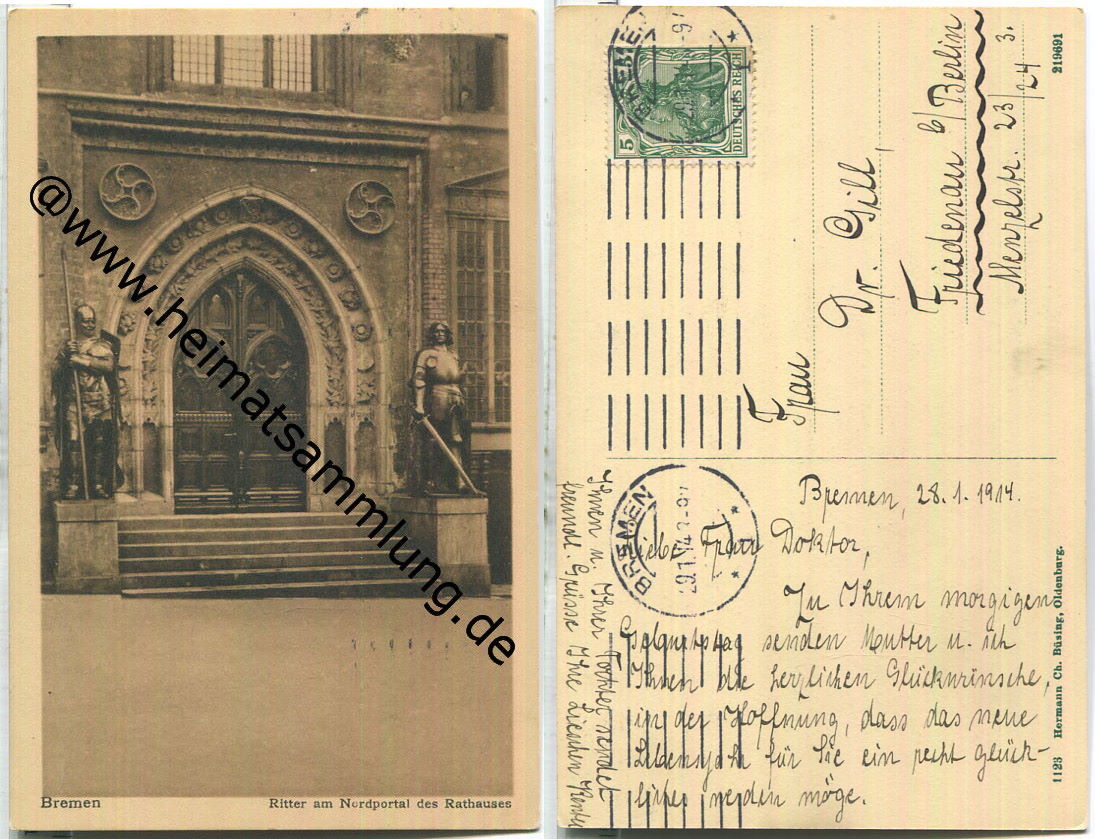 @www.heimatsammlung.de
Bremen
Ritter am Nordportal des Rathauses
BREMEN
5
DEUTSCHES REICH
219691
Frau
Dr. Gill,
Friedenau b/Berlin
Menzelstr. 23/24 3.
BREMEN
29.1.14.2-9V
Bremen, 28.1.1914.
Liebe Frau Doktor,
Zu Ihrem morgigen
Geburtstag senden Mutter u. ich
Ihnen die herzlichen Glückwünsche,
in der Hoffnung, dass das neue
Lebensjahr für Sie ein recht glück-
liches werden möge.
Ihnen u. Ihrer Tochter sendet
freundl. Grüsse Ihre Lieschen
1123 Hermann Ch. Büsing, Oldenburg.